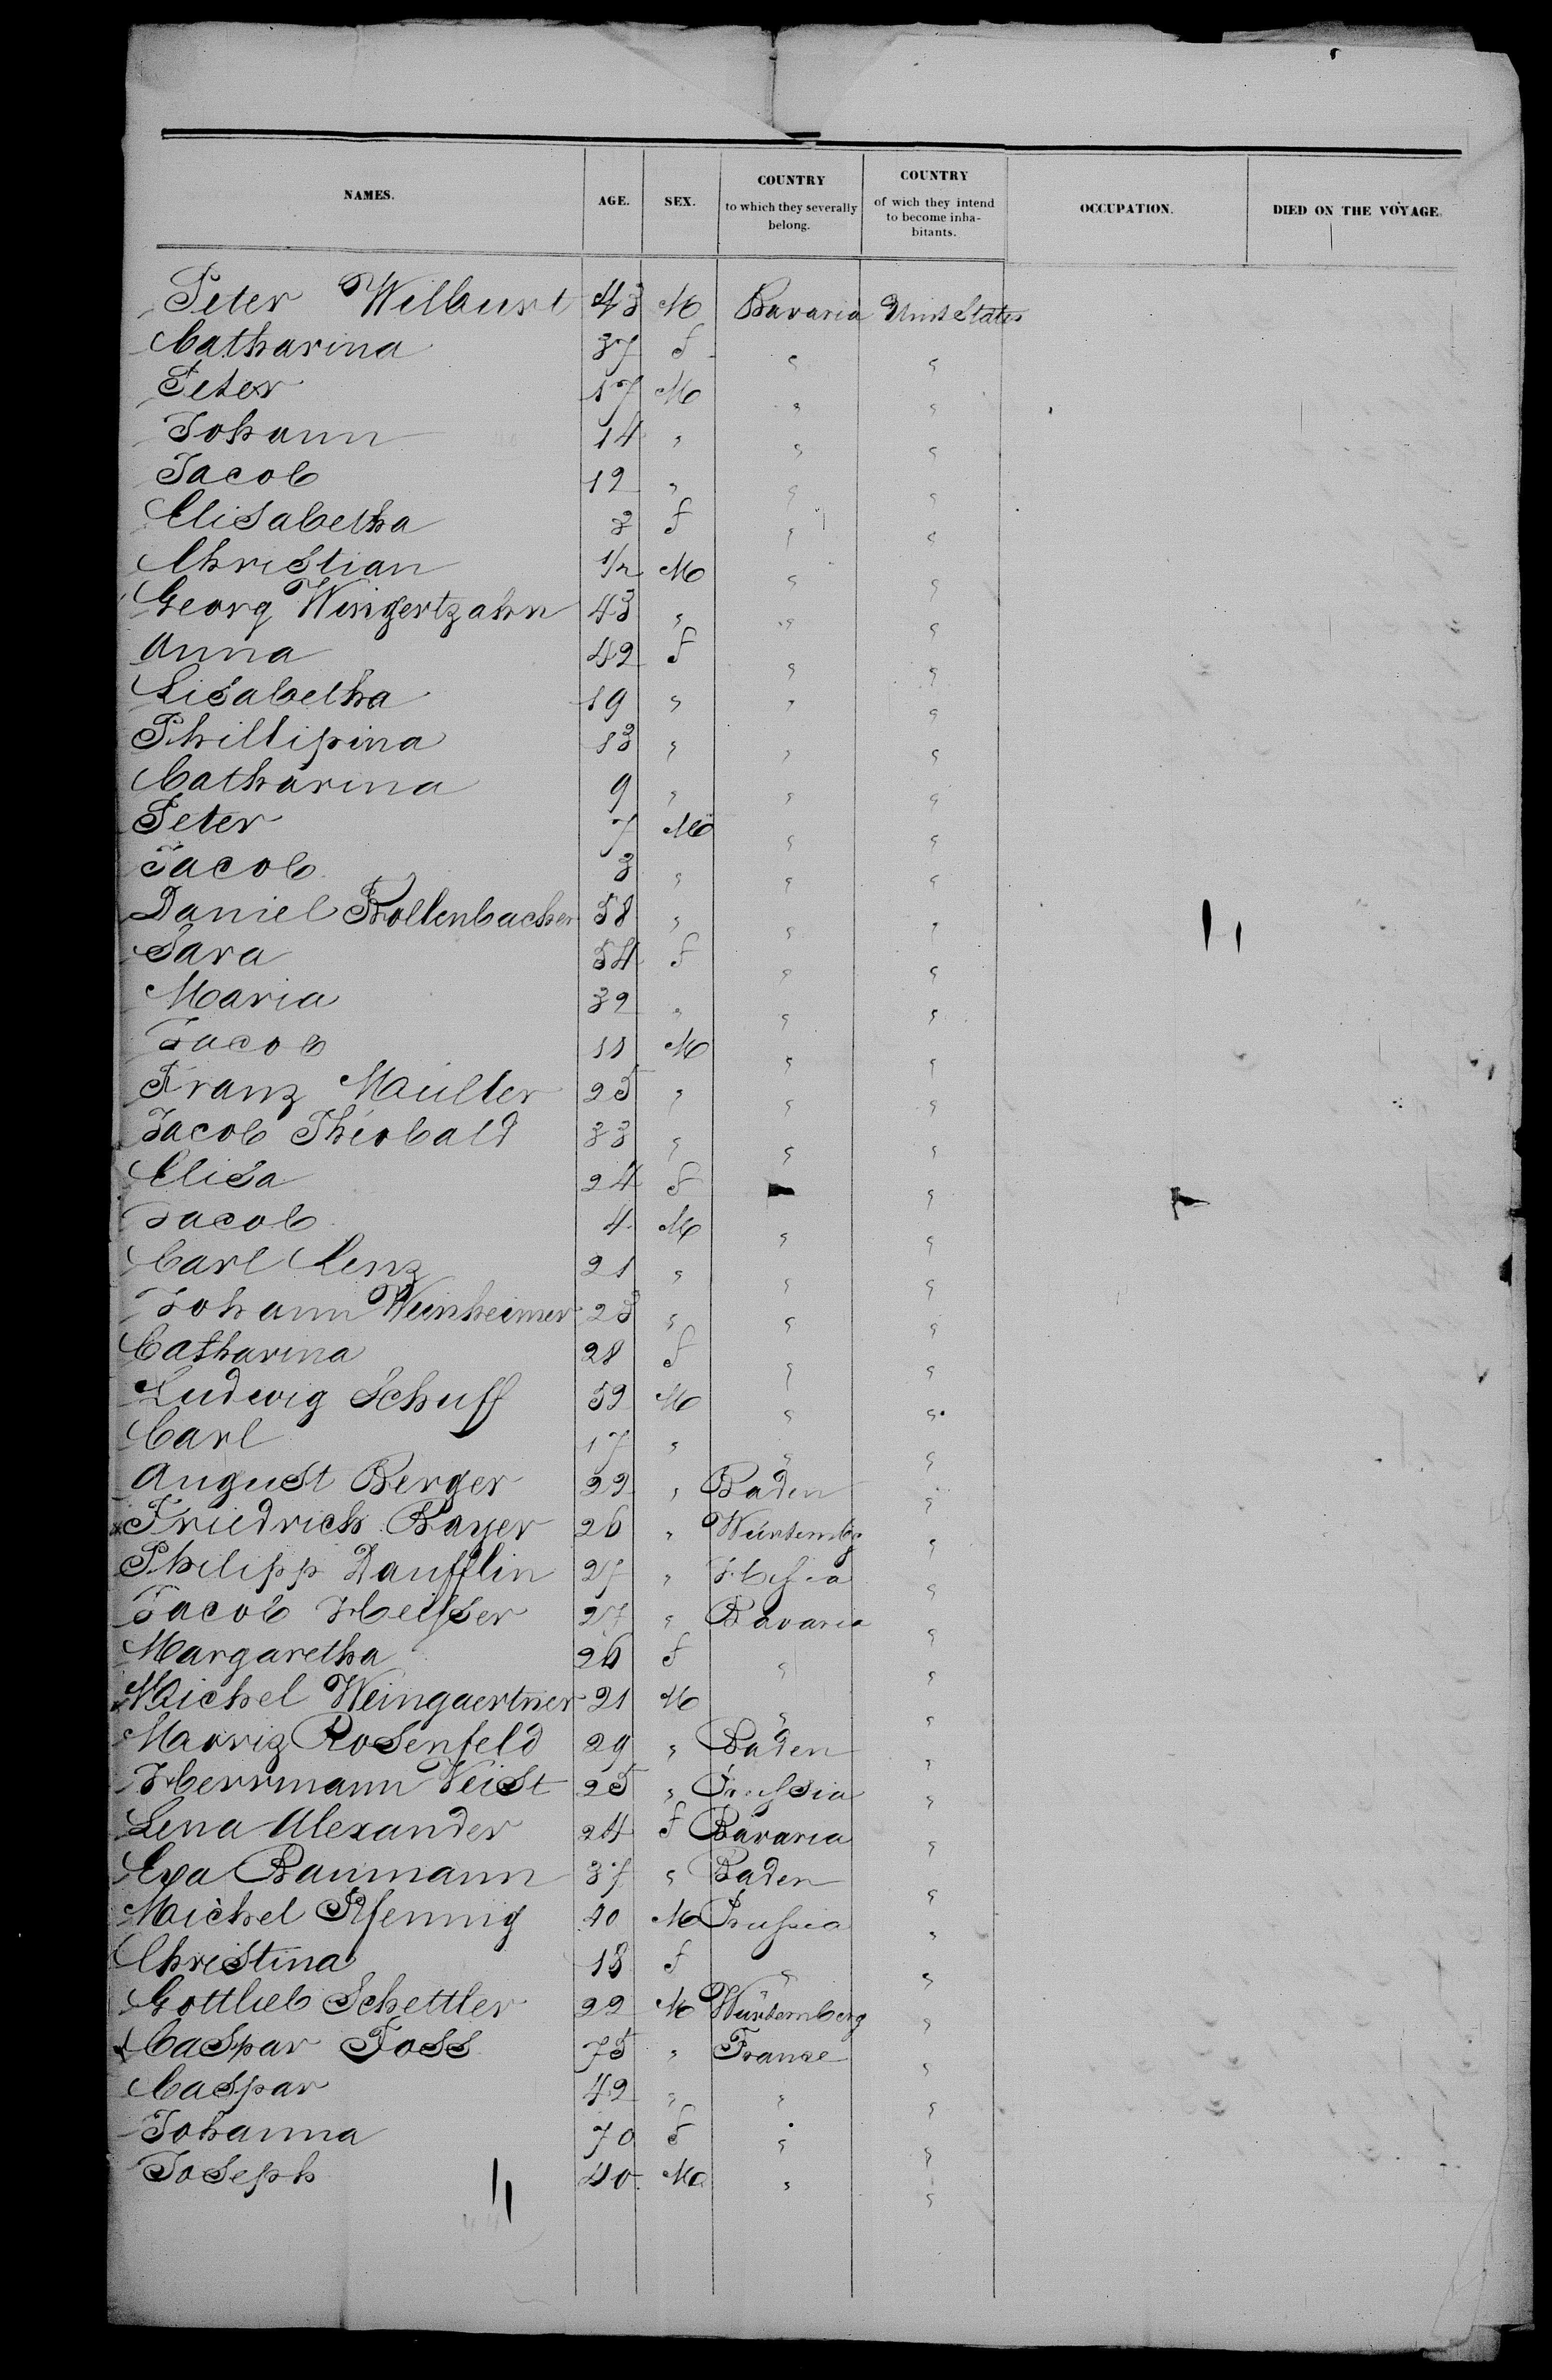 NAMES. AGE. SEX. COUNTRY to which they severally belong. COUNTRY of wich they intend to become inhabitants. OCCUPATION. DIED ON THE VOYAGE.
Peter Wilburt 43 M Bavaria Unit States
Catharina 37 f " "
Peter 17 M " "
Johann 14 " " "
Jacob 12 " " "
Elisabetha 3 f " "
Christian 1/2 M " "
Georg Wingertzahn 43 " " "
Anna 42 f " "
Lisabetha 19 " " "
Phillipina 13 " " "
Catharina 9 " " "
Peter 7 M " "
Jacob 3 " " "
Daniel Bollenbacher 58 " " "
Sara 54 f " "
Maria 32 " " "
Jacob 11 M " "
Franz Müller 25 " " "
Jacob Theobald 33 " " "
Elisa 24 f "
Jacob 4 M " "
Carl Lenz 21 " " "
Johann Weinheimer 23 " " "
Catharina 28 f " "
Ludwig Schuff 52 M " "
Carl 17 " " "
August Berger 22 " Baden "
Friedrich Bayer 26 " Würtemberg "
Philipp Daufflin 27 " Hessia "
Jacob Heisser 27 " Bavaria "
Margaretha 26 f " "
Michel Weingaertner 21 M " "
Moriz Rosenfeld 29 " Baden "
Herrmann Veist 25 " Prussia "
Lena Alexander 24 f Bavaria "
Eva Baumann 37 " Baden "
Michel Pfennig 40 M Prussia "
Christina 18 f " "
Gottlieb Schettler 22 M Würtemberg "
Caspar Foss 75 " France "
Caspar 42 " " "
Johanna 70 f " "
Joseph 40 M " "